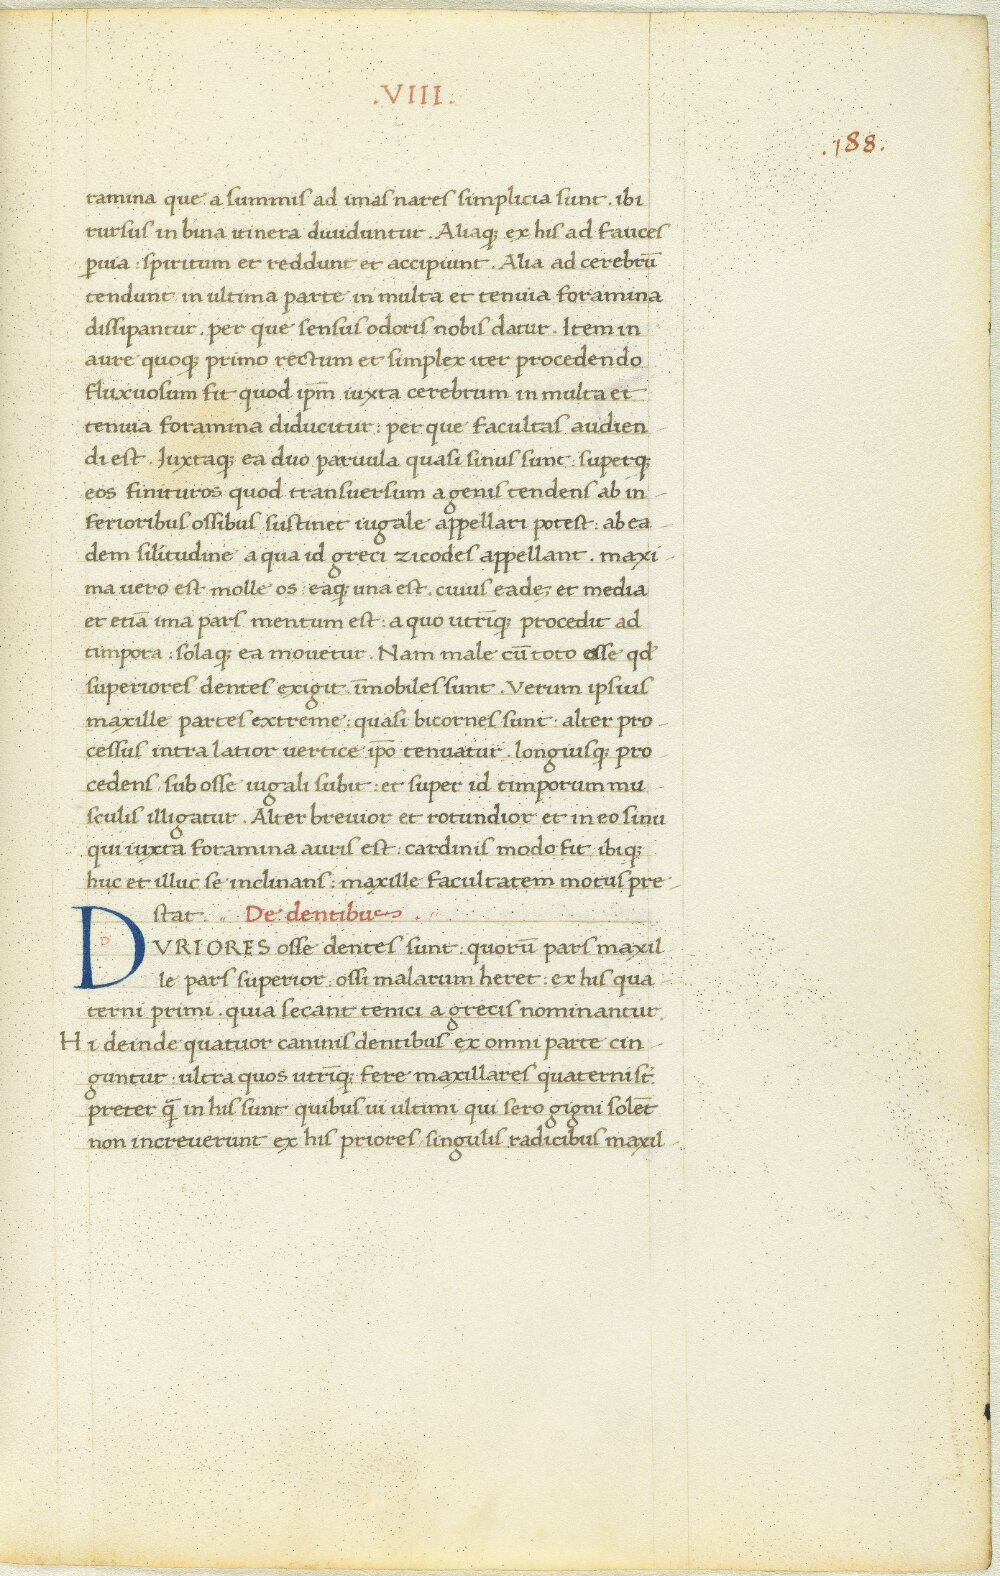 .VIII.
.188.
ramina que a summis ad imas nares simplicia sunt . ibi
rursus in bina itinera diuiduntur . Aliaq; ex his ad fauces
ꝑuia : spiritum et reddunt et accipiunt . Alia ad cerebrū
tendunt in ultima parte in multa et tenuia foramina
dissipantur . per que sensus odoris nobis datur . Item in
aure quoq; primo rectum et simplex iter procedendo
fluxuosum fit quod ip̄m iuxta cerebrum in multa et
tenuia foramina diducitur : per que facultas audien
di est . Juxtaq; ea duo paruula quasi sinus sunt : superq;
eos finituros quod transuersum a genis tendens ab in
ferioribus ossibus sustinet iugale appellari potest : ab ea
dem silitudine a qua id greci zicodes appellant . maxi
ma uero est molle os : eaq; una est . cuius eadeʒ et media
et etiā ima pars mentum est : a quo utrīq; procedit ad
timpora : solaq; ea mouetur . Nam male cū toto osse qd̄
superiores dentes exigit īmobiles sunt . Verum ipsius
maxille partes extreme : quasi bicornes sunt : alter pro
cessus intra latior uertice ip̄o tenuatur . longiusq; pro
cedens sub osse iugali subit : et super id timporum mu
sculis illigatur . Alter breuior et rotundior et in eo sinu
qui iuxta foramina auris est : cardinis modo fit ibiq;
huc et illuc se inclinans : maxille facultatem motus pre
stat . De dentibus .
DVRIORES osse dentes sunt : quorū pars maxil
le pars superior . ossi malarum heret : ex his qua
terni primi . quia secant tenici a grecis nominantur.
Hi deinde quatuor caninis dentibus ex omni parte cin
guntur : ultra quos utrīq; fere maxillares quaterni st̄
preter q̄ in his sunt quibus ui ultimi qui sero gigni solēt
non increuerunt ex his priores singulis radicibus maxil